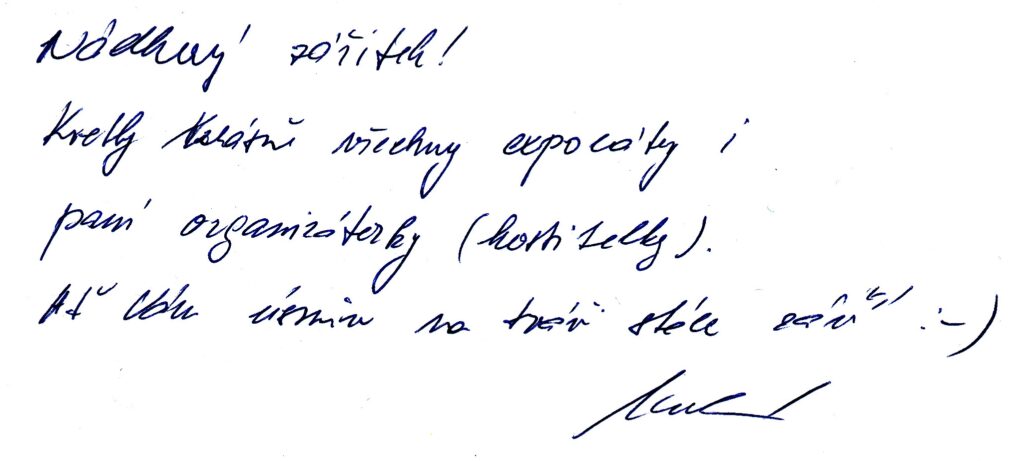 Nádherný zážitek!
krásně všechny exponáty i
paní organizátorky (hostitelky).
Ať Vám úsměv na tváři stále září :-)